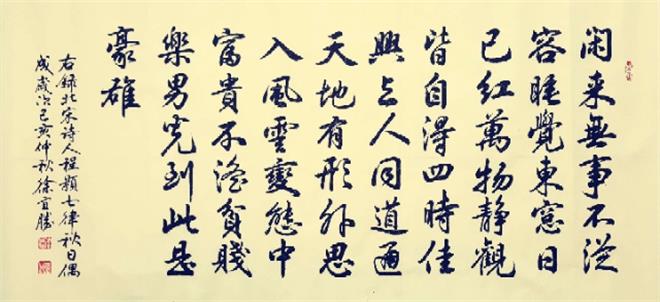 闲来無事不從
容睡覺東窓日
已紅萬物静觀
皆自得四時佳
興与人同道通
天地有形外思
入風雲變態中
富貴不滛貧賤
樂男児到此是
豪雄
右録北宋詩人程顥七律秋日偶
成歲次己亥仲秋徐宜勝